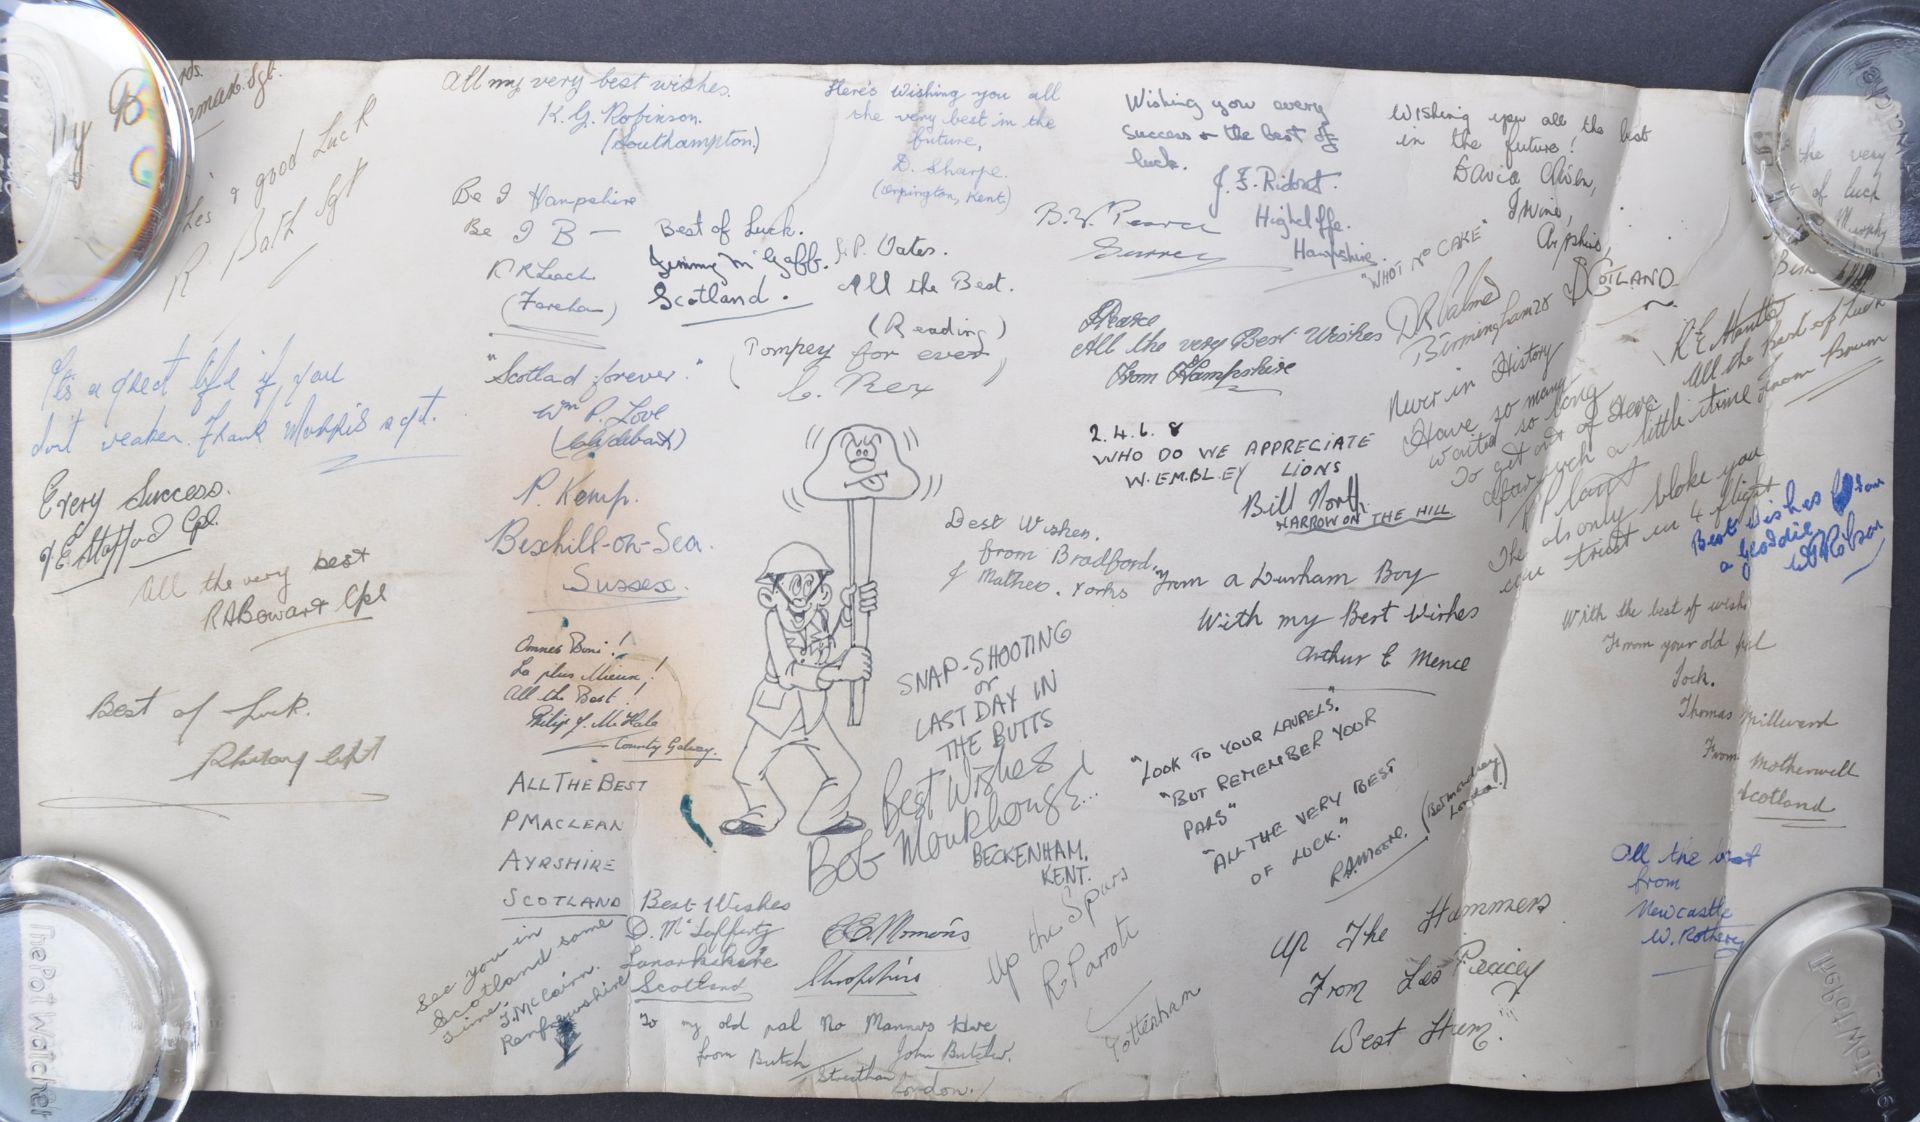 My
Les & good Luck
R. Bath Sgt
It's a great life if you
don't weaken. Frank Morris sgt.
Every Success.
Stafford Cpl.
All the very best
RABowart Cpl
Best of Luck.
All my very best wishes.
K. G. Robinson.
(Southampton.)
Here's wishing you all
the very best in the
future,
D. Sharpe.
(Orpington, Kent.)
Wishing you every
success & the best of
luck.
J. F. Ridout.
Highcliffe.
Hampshire.
Wishing you all the best
in the future!
David
Irvine,
SCOTLAND
the very
of luck
Murphy
Be I Hampshire
Be I B —
R Leach
(Fareham)
Best of Luck.
Jimmy McGaff.
Scotland.
J.P. Oates.
All the Best.
(Reading)
B. W. Pearce
Surrey
"WHOT NO CAKE"
D R Palmer
Birmingham 28
Pearce
All the very Best Wishes
From Hampshire
R E Mantle
All the best of luck
from Brum
"Scotlad forever."
Wm P. Love
(Pompey for ever)
C. Rex
Never in History
Have so many
waited so long
To get out of Here
For such a little time
P Plant
The only bloke you
can trust in 4 flight
P. Kemp.
Bexhill-on-Sea.
Sussex.
2. 4. 6. 8
WHO DO WE APPRECIATE
WEMBLEY LIONS
Bill North
HARROW ON THE HILL
Best Wishes from
a Geordie
Robson
Best Wishes.
from Bradford.
J Mather. Yorks
From a Durham Boy
With my Best Wishes
Arthur E Mence
With the best of wishes
From your old pal
Jock.
Thomas Millward
From Motherwell
Scotland
Omnes Boni!
Le plus Mieux!
All the Best!
Philip J. McHale
County Galway.
SNAP-SHOOTING
or
LAST DAY IN
THE BUTTS
Best Wishes
Bob Monkhouse...
BECKENHAM,
KENT.
"LOOK TO YOUR LAURELS."
"BUT REMEMBER YOUR
PALS"
"ALL THE VERY BEST
OF LUCK."
R.A. Moore.
(Bermondsey
London.)
ALL THE BEST
P MACLEAN
AYRSHIRE
SCOTLAND
All the best
from
Newcastle
W. Rothery
See you in
Scotland some
time.
J. McCairn.
Renfrewshire
Best Wishes
D. McLafferty
Lanarkshire
Scotland
Shropshire
Up the Spurs
R Parrott
Tottenham
Up The Hammers
From Les Peacey
West Ham"
To my old pal No Manners Hare
from Butch John Butcher.
Streatham
London.
The Pot Watcher